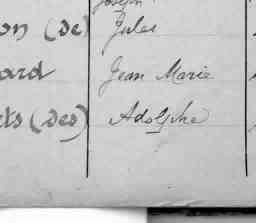 Joseph
on (de) Jules
ard Jean Marie
ts (des) Adolphe